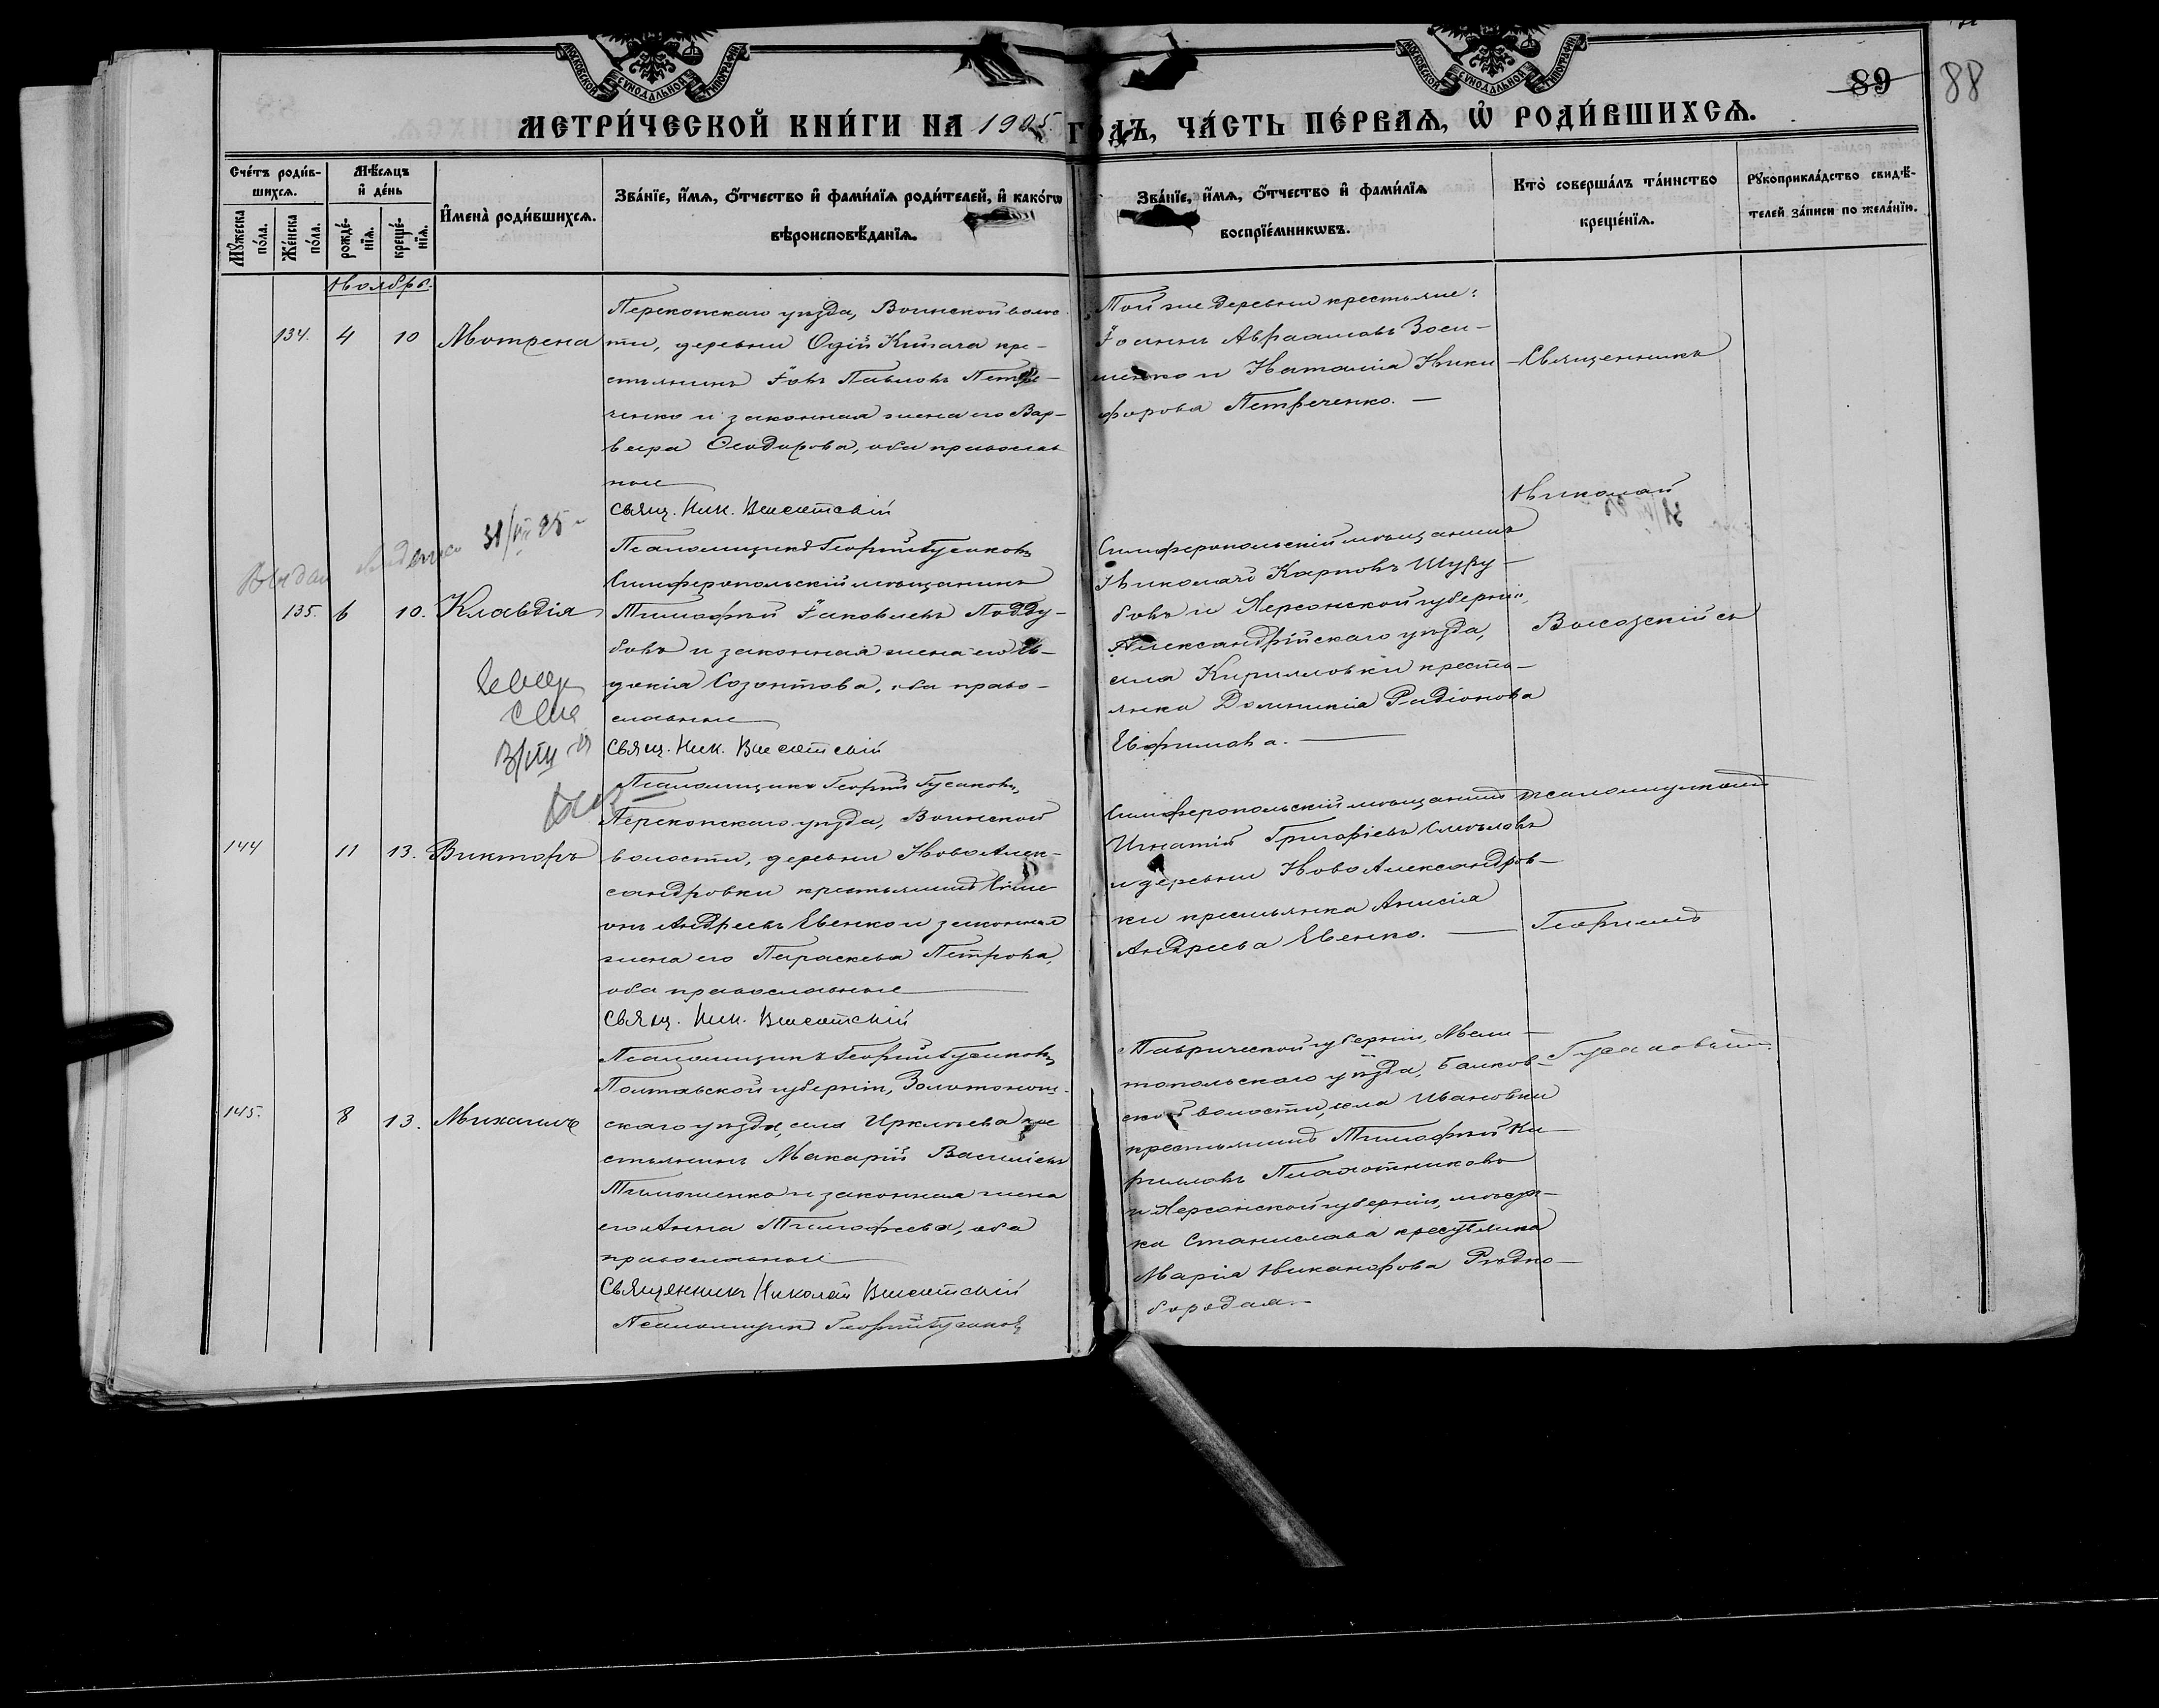 МОСКОВСКОЙ СУНОДАЛЬНОЙ ТИПОГРАФІИ
МОСКОВСКОЙ СУНОДАЛЬНОЙ ТИПОГРАФІИ
89 88
МЕТРИ́ЧЕСКОЙ КНИ́ГИ НА 1905 ГО́ДЪ, ЧА́СТЬ ПЕ́РВАѦ, Ѡ҆ РОДИ́ВШИХСѦ.
Сче́тъ роди́в-
шихсѧ.
Мꙋ́жеска по́ла.
Же́нска по́ла.
Мѣ́сѧцъ и҆ де́нь
рожде́-
нїѧ.
креще́-
нїѧ.
И҆мена̀ роди́вшихсѧ.
Зва́нїе, и҆́мѧ, ѻ҆́тчество и҆ фами́лїѧ роди́телей, и҆ како́гѡ
вѣроисповѣ́данїѧ.
Зва́нїе, и҆́мѧ, ѻ҆́тчество и҆ фами́лїѧ
воспрїе́мникѡвъ.
Кто̀ соверша́лъ та́инство
креще́нїѧ.
Рꙋкоприкла́дство свидѣ́-
телей за́писи по жела́нїю.
Ноябрь.
134. 4 10 Мотрена
Перекопскаго уѣзда, Воинской волос-
ти, деревни Одій Кигача кре-
стьянинъ Іовъ Павловъ Петре-
ченко и законная жена его Вар-
вара Ѳеодорова, оба православ
ные
Свящ. Ник. Высотскій
Псаломщикъ Георгій Гусаковъ
Той же деревни крестьяне:
Іоаннъ Авраамовъ Зоси-
менко и Наталія Ники-
форова Петреченко. —
Священникъ
Николай
31/VII 25
135. 6 10. Клавдія
Симферопольскій мѣщанинъ
Тимофей Іаковлевъ Подду-
бовъ и законная жена его Ев-
докія Созонтова, оба право-
славные
Свящ. Ник. Высотскій
Псаломщикъ Георгій Гусаковъ
Симферопольскій мѣщанинъ
Николай Карповъ Шуру-
бовъ и Херсонской губерніи,
Александрійскаго уѣзда,
села Кирилловки кресть-
янка Домникія Радіонова
Евфимова. —
144 11 13. Викторъ
Перекопскаго уѣзда, Воинской
волости, деревни Ново Алек-
сандровки крестьянинъ Симе
онъ Андреевъ Евенко и законная
жена его Параскева Петрова,
оба православные
Свящ. Ник. Высотскій
Псаломщикъ Георгій Гусаковъ
Симферопольскій мѣщанинъ
Игнатій Григоріевъ Смѣловъ
и деревни Ново Александров-
ки крестьянка Анисія
Андреева Евенко. —
псаломщикомъ
Георгіемъ
145. 8 13. Михаилъ
Полтавской губерніи, Золотонош-
скаго уѣзда, села Ирклѣева кре
стьянинъ Макарій Васильевъ
Тимошенко и законная жена
его Анна Тимофеева, оба
православные
Священникъ Николай Высотскій
Псаломщикъ Георгій Гусаковъ
Таврической губерніи, Мели-
топольскаго уѣзда, Балков-
ской волости, села Ивановки
крестьянинъ Тимофей Ки-
рилловъ Плахотниковъ
и Херсонской губерніи, мѣстеч-
ка Станислава крестьянка
Марія Никанорова Рюдко-
бородая. —
Гусаковымъ.